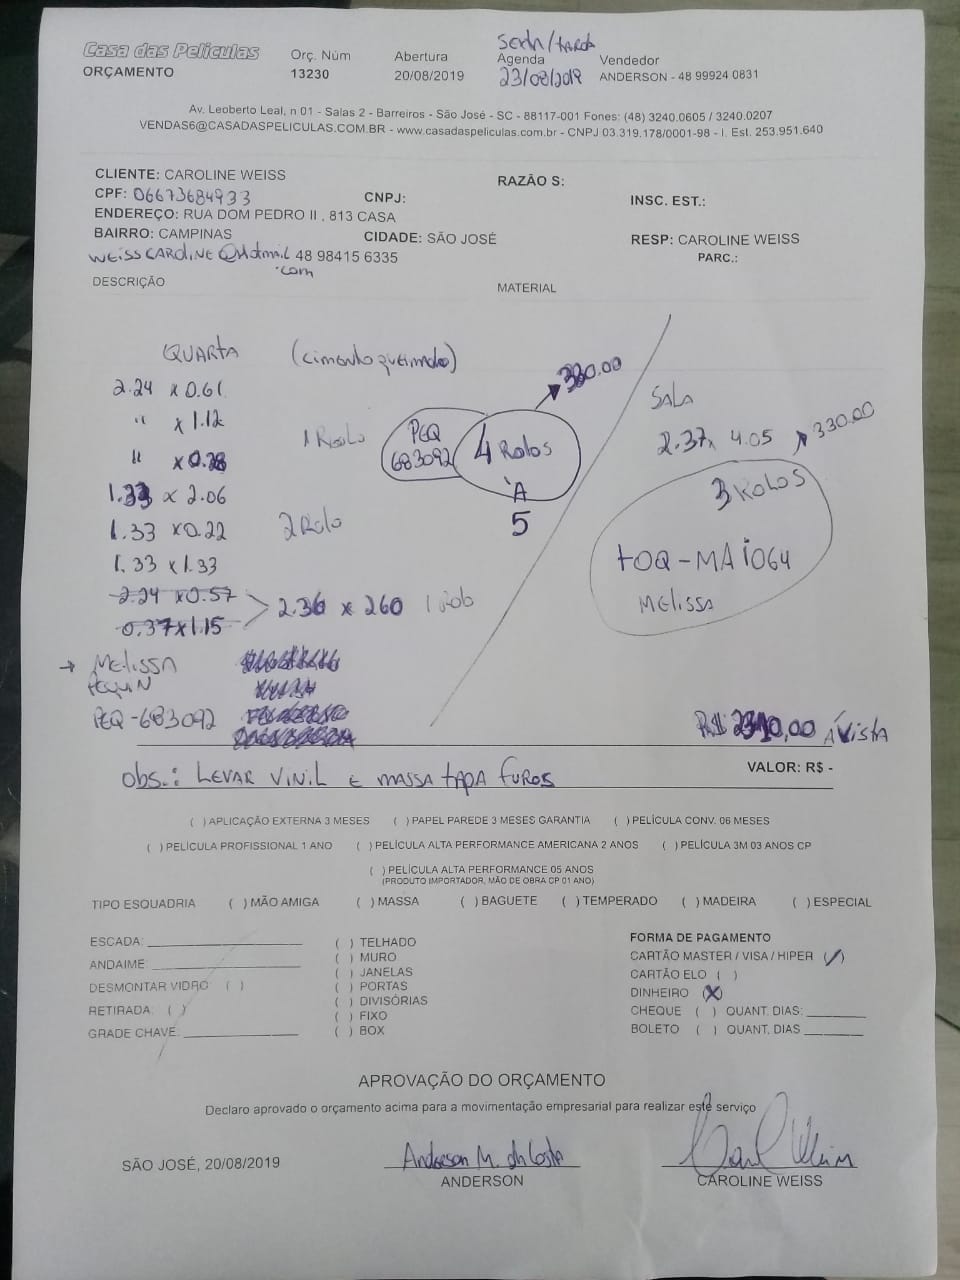 Casa das Películas
ORÇAMENTO
Orç. Núm
13230
Abertura
20/08/2019
Sexta/tarde
Agenda
23/08/2019
Vendedor
ANDERSON - 48 99924 0831
Av. Leoberto Leal, n 01 - Salas 2 - Barreiros - São José - SC - 88117-001 Fones: (48) 3240.0605 / 3240.0207
VENDAS6@CASADASPELICULAS.COM.BR - www.casadaspeliculas.com.br - CNPJ 03.319.178/0001-98 - I. Est. 253.951.640
CLIENTE: CAROLINE WEISS
RAZÃO S:
CPF: 06673684933
CNPJ:
INSC. EST.:
ENDEREÇO: RUA DOM PEDRO II , 813 CASA
BAIRRO: CAMPINAS
CIDADE: SÃO JOSÉ
RESP: CAROLINE WEISS
WEISSCAROLINE@Hotmail 48 98415 6335
.com
PARC.:
DESCRIÇÃO
MATERIAL
QUARTA (cimento queimado)
2.24 x 0.61
" x 1.12
" x
1.33 x 2.06
1.33 x 0.22
1.33 x 1.33
2.24 x 0.57
0.37 x 1.15
1 Rolo
2 Rolo
2.36 x 260 1 Rolo
PEQ
683092
4 Rolos
À
5
330.00
SALA
2.37 x 4.05
330.00
3 ROLOS
TOQ-MAI064
MELISSA
→ MELISSA
PEQUIN
PEQ-683092
R$ 2310,00 À VISTA
VALOR: R$ -
obs.: LEVAR VINIL E MASSA TAPA FUROS
( ) APLICAÇÃO EXTERNA 3 MESES ( ) PAPEL PAREDE 3 MESES GARANTIA ( ) PELÍCULA CONV. 06 MESES
( ) PELÍCULA PROFISSIONAL 1 ANO ( ) PELÍCULA ALTA PERFORMANCE AMERICANA 2 ANOS ( ) PELÍCULA 3M 03 ANOS CP
( ) PELÍCULA ALTA PERFORMANCE 05 ANOS
(PRODUTO IMPORTADOR, MÃO DE OBRA CP 01 ANO)
TIPO ESQUADRIA ( ) MÃO AMIGA ( ) MASSA ( ) BAGUETE ( ) TEMPERADO ( ) MADEIRA ( ) ESPECIAL
ESCADA:
ANDAIME:
DESMONTAR VIDRO ( )
RETIRADA: ( )
GRADE CHAVE:
( ) TELHADO
( ) MURO
( ) JANELAS
( ) PORTAS
( ) DIVISÓRIAS
( ) FIXO
( ) BOX
FORMA DE PAGAMENTO
CARTÃO MASTER / VISA / HIPER (/)
CARTÃO ELO ( )
DINHEIRO (X)
CHEQUE ( ) QUANT. DIAS:
BOLETO ( ) QUANT. DIAS
APROVAÇÃO DO ORÇAMENTO
Declaro aprovado o orçamento acima para a movimentação empresarial para realizar este serviço
SÃO JOSÉ, 20/08/2019
Anderson M. da Costa
ANDERSON
Carol Weiss
CAROLINE WEISS